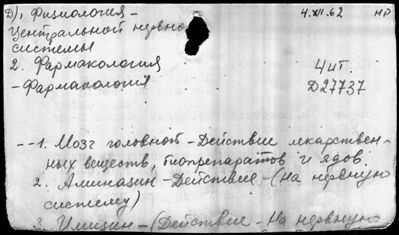 Д), Физиология - 4.XII.62 НР
Центральной нервно
системы
2. Фармакология 4 ит.
- Фармакология Д27737
-- 1. Мозг головной - Действие лекарствен-
ных веществ, биопрепаратов и ядов.
2. Аминазин - Действие - (на нервную
систему)
3. Имизин - (Действие - на нервную